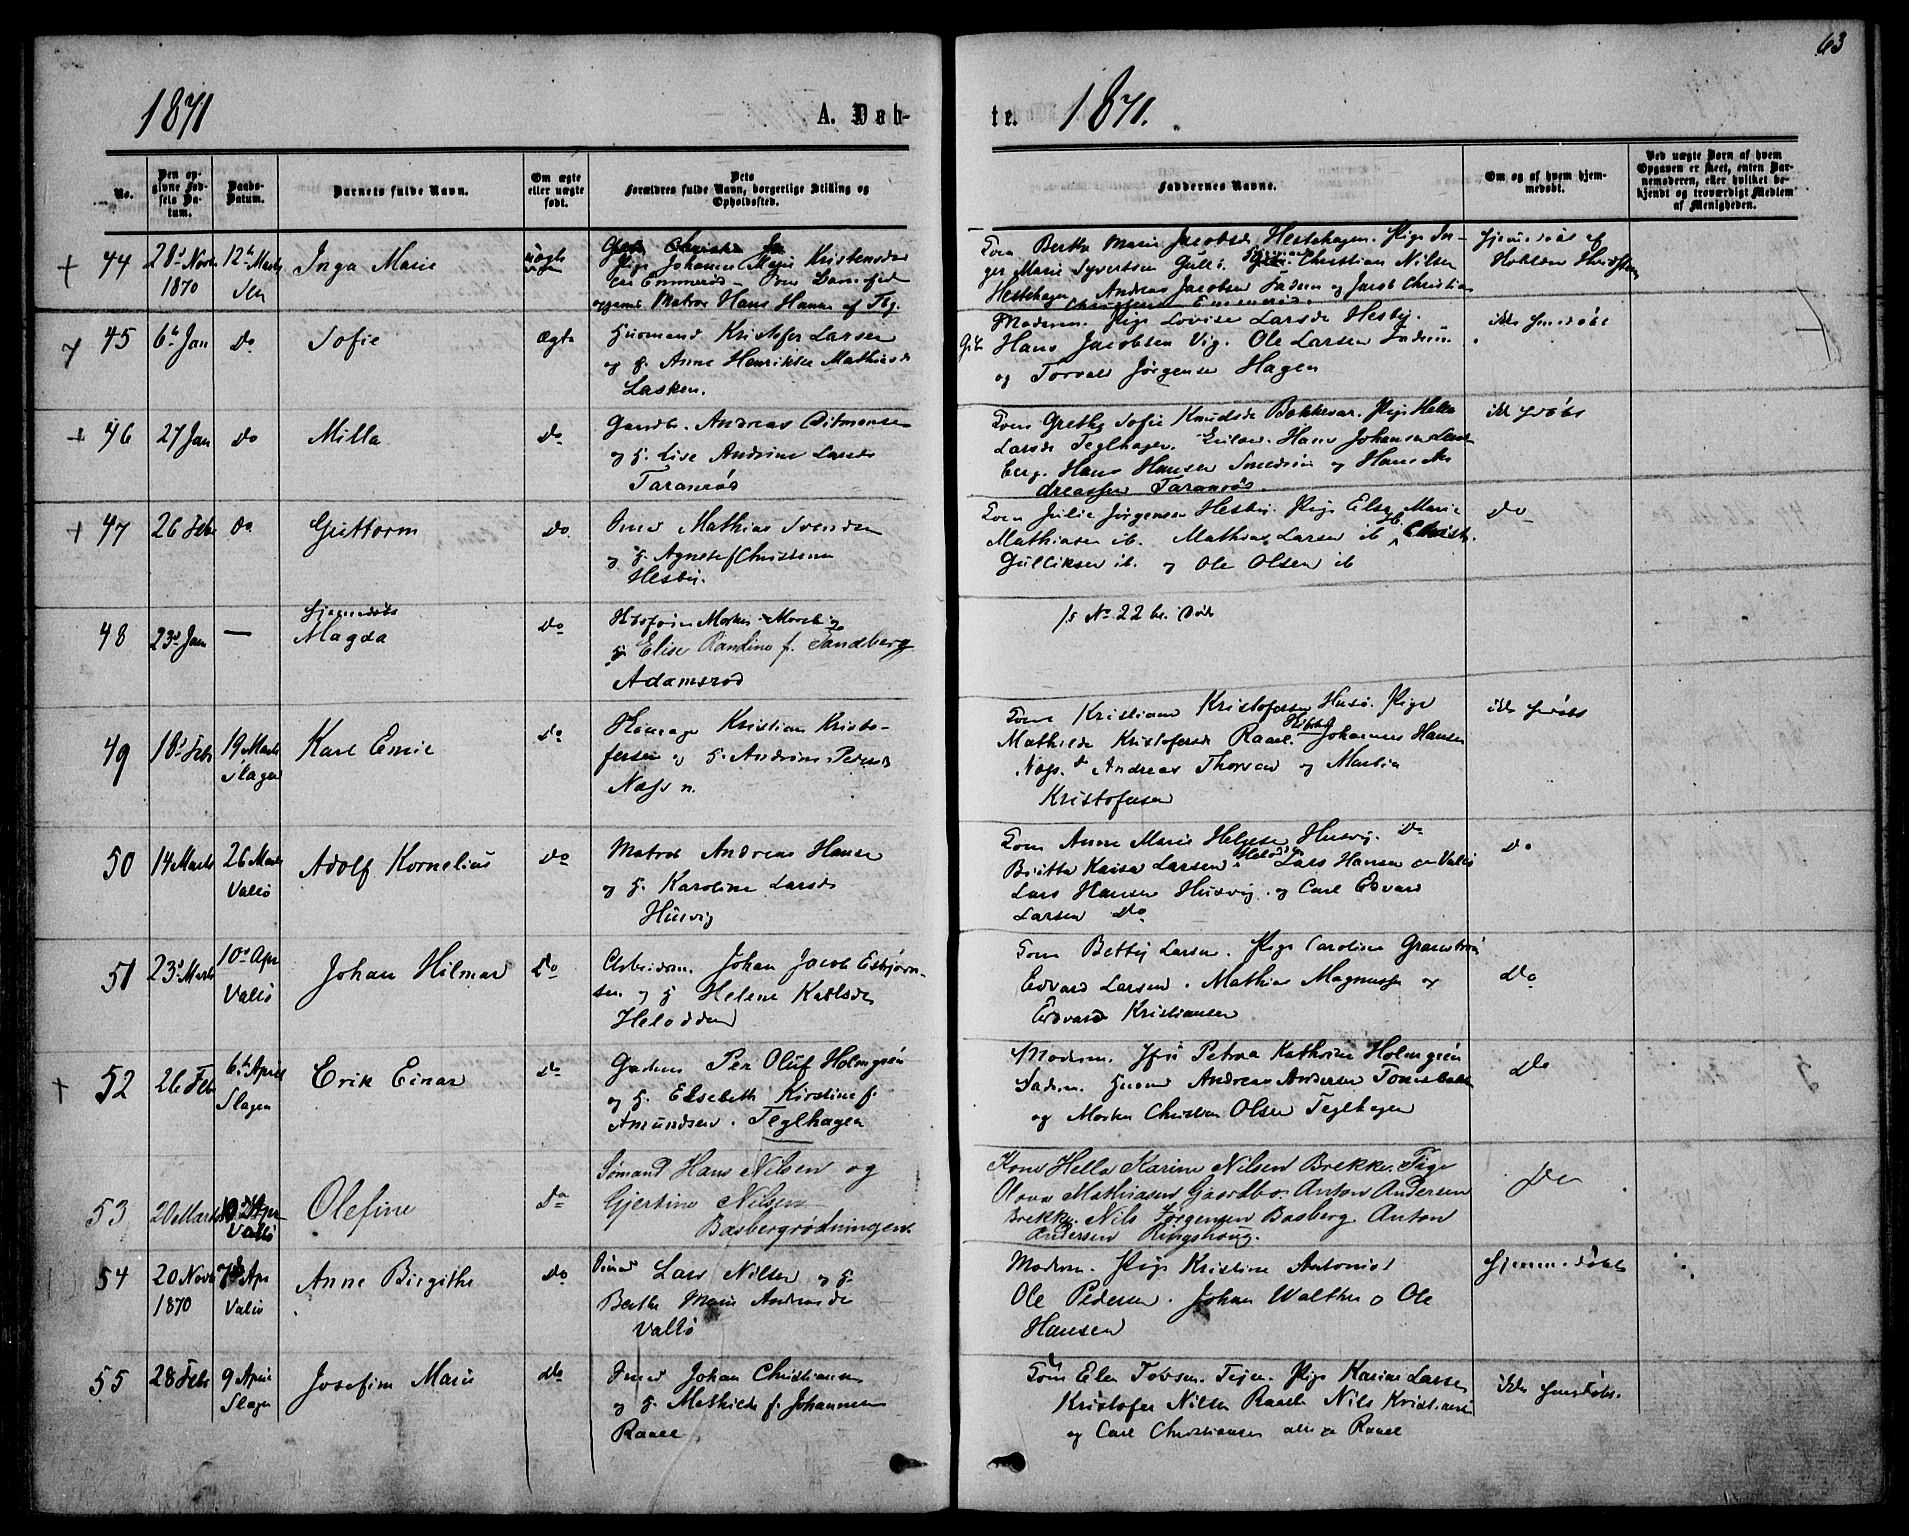 63
1871
A. Døb-
te.
1871.
No.
Den op-
givne Fød-
sels Da-
tum.
Daabs-
Datum.
Barnets fulde Navn.
Om ægte
eller uægte
født.
Dets
Forældres fulde Navn, borgerlige Stilling og
Opholdssted.
Faddernes Navne.
Om og af hvem hjem-
medøbt.
Ved uægte Børn af hvem
Opgaven er skeet, enten Bar-
nemoderen, eller hvilket be-
kjendt og troværdigt Medlem
af Menigheden.
+ 44
28 Novb
1870
12 Marts
Slg
Inga Marie
uægte
Pige Johanne Marie Kristensdr
Matros Hans Hansen af Tbg.
Kone Berthe Marie Jacobsd. Hestehagen. Pige In-
ger Marie Syvertsen Gulli. Christian Nilsen
Hestehagen Andreas Jacobsen Faderen og Jacob Christian
Hjemmedøbt af
45
6 Jan
Do
Sofie
Ægte
Huusmand Kristofer Larsen
og H. Anne Henrikke Mathiasd
Lasken.
Moderen. Pige Lovise Larsd Hesby.
Hans Jacobsen Vig. Ole Larsen Faderen
og Torvald Jørgensen Hagen
ikke hjmdøbt
+ 46
27 Jan
Do
Milla
Do
Gaardbr. Andreas Ditmansen
og H. Lise Andrine Larsd
Taranrød
Kone Grethe Sofie Knudsd Bakkevar. Pige Helle
Larsd Teglhagen. Hans Johansen Lens
berg. Hans Hansen Smedsrøn og Hans An
dreassen Taranrød.
ikk hjdøbt
+ 47
26 Feb
Do
Guttorm
Do
Inds Mathias Svendsen
og H. Agnete f Christensen
Hesby.
Kone Julie Jørgensen Hesby. Pige Else Marie
Mathiasen ib. Mathias Larsen ib Christ.
Gulliksen ib. og Ole Olsen ib
Do
48
23 Jan
—
Hjemmedøbt
Magda
Do
H. Elise Randine f. Sandberg
Adamsrød
s No 22 bl. Døde
49
18 Feb
19 Marts
Slagen
Karl Emil
Do
Kristian Kristo-
fersen og H. Andrine Pedersd
Næss n.
Kone Kristiane Kristofersen Husø. Pige
Mathilde Kristofersd Raael. Johannes Hansen
Næss. Andreas Thorsen og Martin
Kristofersen
ikke hjdøbt
50
14 Marts
26 Marts
Vallø
Adolf Kornelius
Do
Matros Andreas Hansen
og H. Karoline Larsd
Husvig
Kone Anne Marie Helgesen Husvig. Do
Britta Kaisa Larsen Helodden Lars Hansen Vallø
Lars Hansen Husvig og Carl Edvard
Larsen Do
Do
51
23 Marts
10 Apr
Vallø
Johan Hilmar
Do
Arbeidsm. Johan Jacob Esbjørn-
sen og H Helene Karlsd
Helodden
Kone Betty Larsen. Pige Caroline Granstrøm
Edvard Larsen. Mathias Magnuss og
Edvard Kristiansen
Do
+ 52
26 Feb
6 April
Slagen
Erik Einar
Do
Gartner Per Oluf Holmgren
og H. Elsebeth Kirstine f.
Amundsen. Teglhagen
Moderen. Jfr Petrea Kathrine Holmgren
Faderen. Huusmd Andreas Andersen Tomsbakk
og Morten Christian Olsen Teglhagen
Do
53
20 Marts
10 Apr
Vallø
Olefine
Do
Sømand Hans Nilsen og
Gjertine Nilsen
Basbergrødningen.
Kone Helle Karine Nilsen Brekke. Pige
Olava Mathiasen Gaardbo. Anton Andersen
Brekke. Nils Jørgensen Basberg. Anton
Andersen Ringshoug.
Do
54
20 Novb
1870
7 Apr
Vallø
Anne Birgithe
Do
Inds Lars Nilsen og H.
Berthe Marie Andreasd
Vallø
Moderen. Pige Kristine Antonisd
Ole Pedersen. Johan Walther og Ole
Hansen
Hjemmedøbt
55
28 Feb
9 April
Slagen
Josefine Marie
Do
Inds Johan Christiansen
og H. Mathilde f. Johannesen
Raael
Kone Elen Tovsen. Teien. Pige Karine Larsen
Kristofer Nilsen Raael Nils Kristiansen
og Carl Christiansen alle Raael
ikke hjmdøbt.